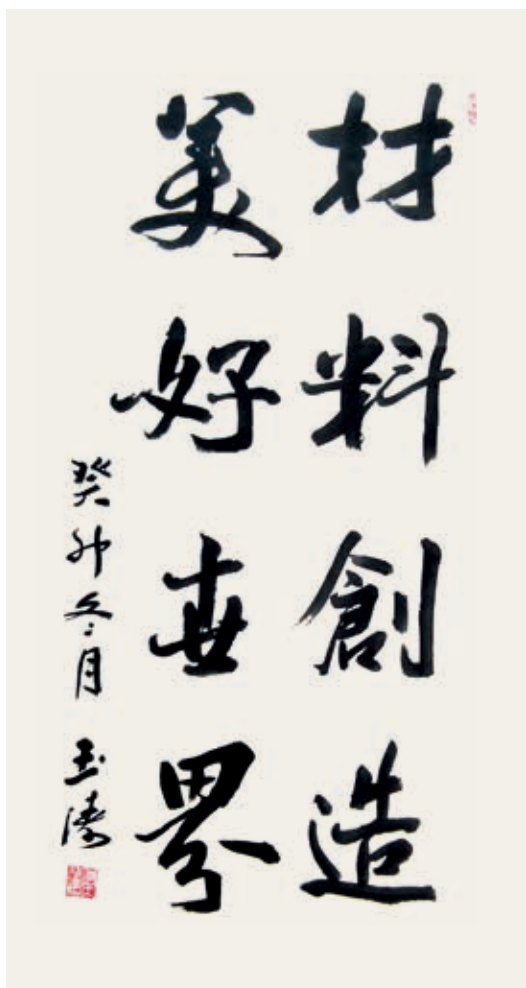 材料創造
美好世界
癸卯冬月 玉濤